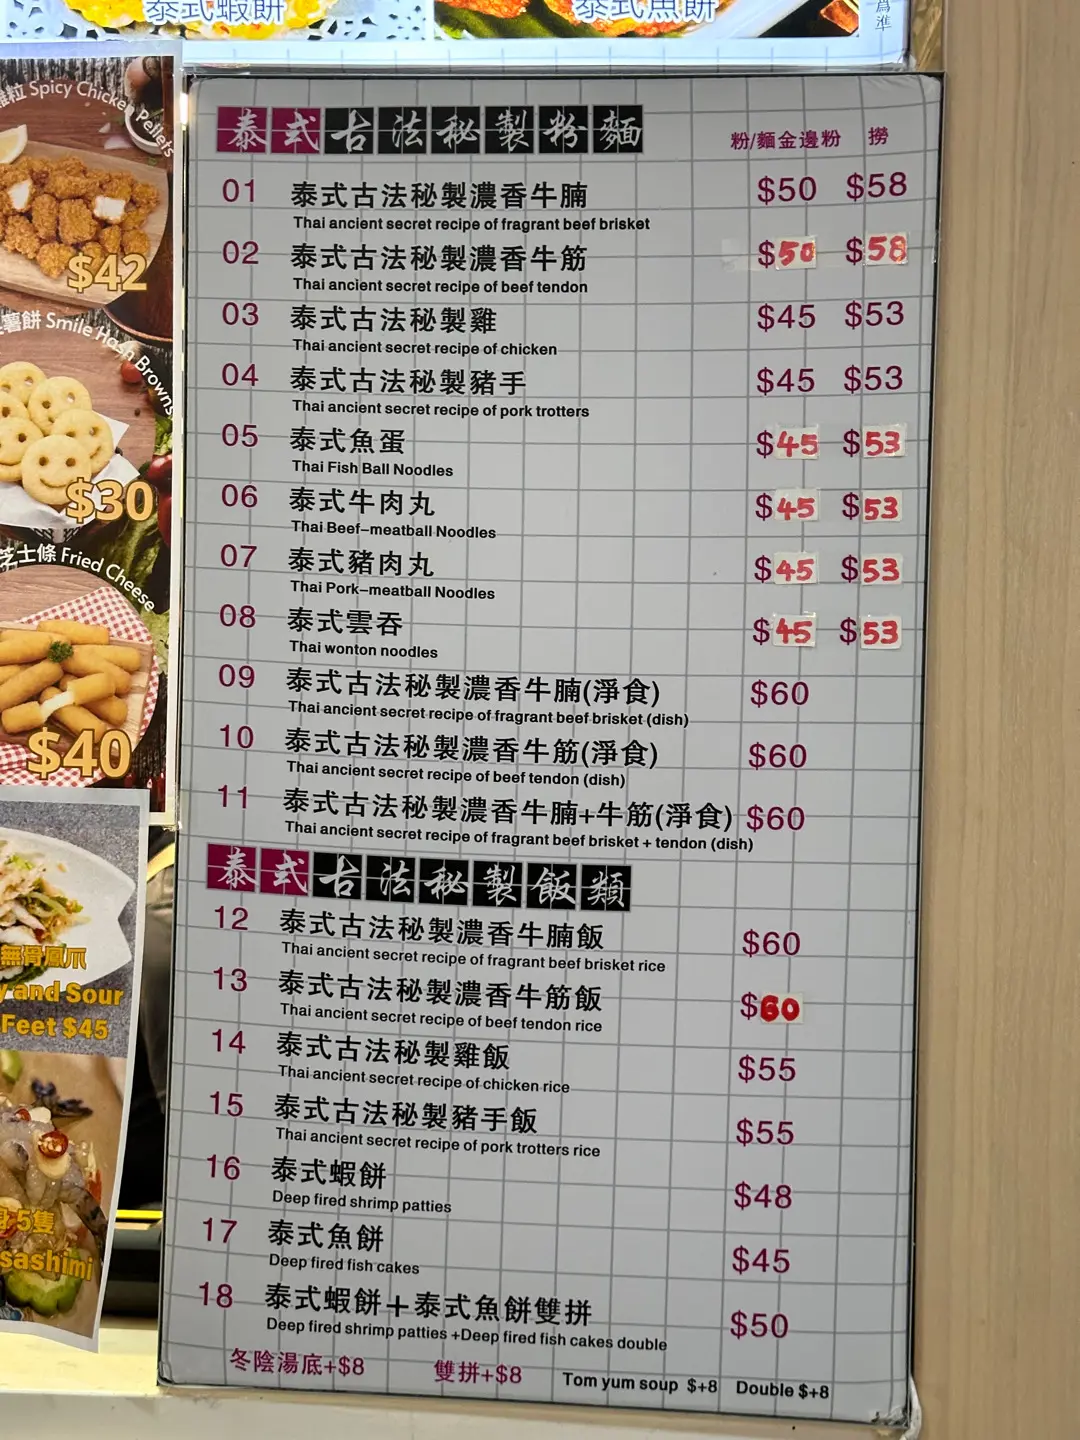 泰式蝦餅
泰式魚餅
為準
粒 Spicy Chicken Pellets
$42
薯餅 Smile Hash Browns
$30
芝士條 Fried Cheese
$40
無骨鳳爪
and Sour
Feet $45
5隻
sashimi
泰式古法秘製粉麵
粉/麵金邊粉 撈
01 泰式古法秘製濃香牛腩 $50 $58
Thai ancient secret recipe of fragrant beef brisket
02 泰式古法秘製濃香牛筋 $50 $58
Thai ancient secret recipe of beef tendon
03 泰式古法秘製雞 $45 $53
Thai ancient secret recipe of chicken
04 泰式古法秘製豬手 $45 $53
Thai ancient secret recipe of pork trotters
05 泰式魚蛋 $45 $53
Thai Fish Ball Noodles
06 泰式牛肉丸 $45 $53
Thai Beef-meatball Noodles
07 泰式豬肉丸 $45 $53
Thai Pork-meatball Noodles
08 泰式雲吞 $45 $53
Thai wonton noodles
09 泰式古法秘製濃香牛腩(淨食) $60
Thai ancient secret recipe of fragrant beef brisket (dish)
10 泰式古法秘製濃香牛筋(淨食) $60
Thai ancient secret recipe of beef tendon (dish)
11 泰式古法秘製濃香牛腩+牛筋(淨食) $60
Thai ancient secret recipe of fragrant beef brisket + tendon (dish)
泰式古法秘製飯類
12 泰式古法秘製濃香牛腩飯 $60
Thai ancient secret recipe of fragrant beef brisket rice
13 泰式古法秘製濃香牛筋飯 $60
Thai ancient secret recipe of beef tendon rice
14 泰式古法秘製雞飯 $55
Thai ancient secret recipe of chicken rice
15 泰式古法秘製豬手飯 $55
Thai ancient secret recipe of pork trotters rice
16 泰式蝦餅 $48
Deep fired shrimp patties
17 泰式魚餅 $45
Deep fired fish cakes
18 泰式蝦餅+泰式魚餅雙拼 $50
Deep fired shrimp patties +Deep fired fish cakes double
冬陰湯底+$8 雙拼+$8 Tom yum soup $+8 Double $+8